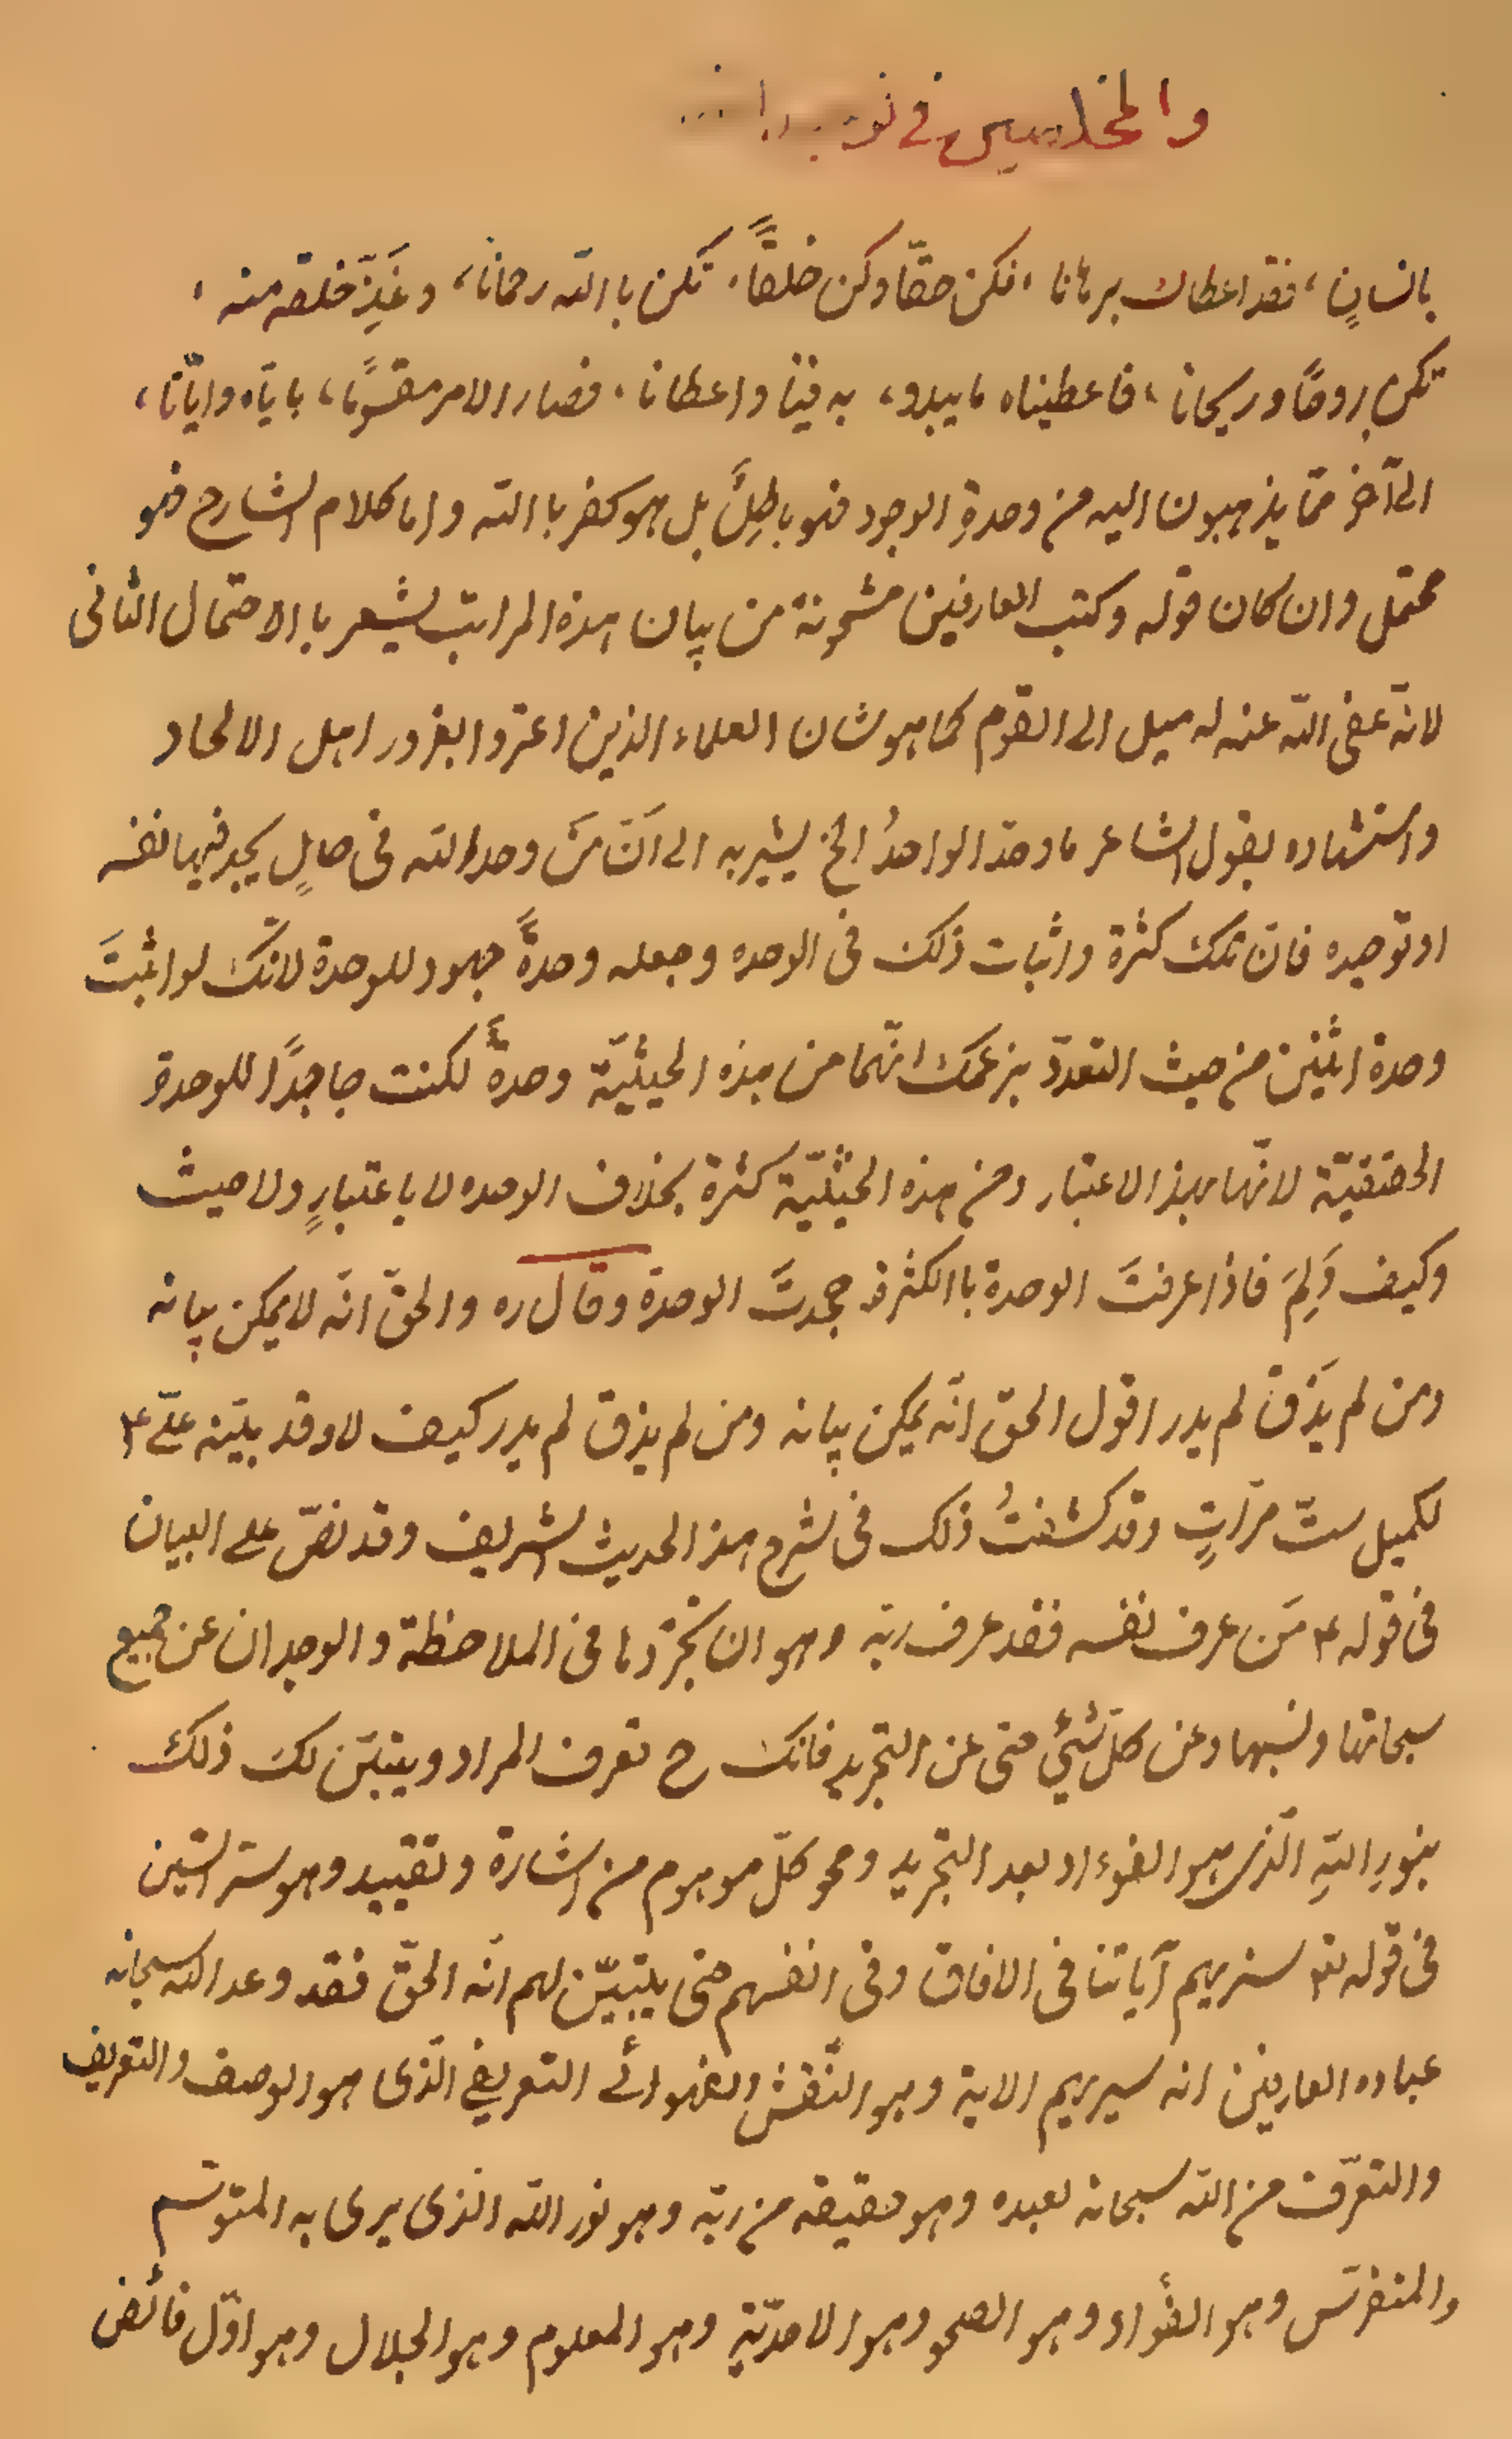 والمخلصين في
بانسانٍ، فقد اعطاك برهانا، فكن حقّا وكن خلقاً، تكن باالله رحمانا، وغَذِّ خلقه منه،
تكن روحًا وريحانا، فاعطيناه مايبدو، به فينا واعطانا، فصار الامر مقسومًا، باياه وايّانا،
الى آخر ممّا يذهبون اليه من وحدةِ الوجود فهو باطلٌ بل هو كفر باالله واما كلام الشارح فهو
محتمل وان كان قوله وكتب العارفين مشحونة من بيان هذه المراتب يشعر باالاحتمال الثانى
لانه عفى الله عنه له ميل الى القوم كما هو شان العلماء الذين اغتروا بغرور اهل الالحاد
واستشهاده بقول الشاعر ما وحّد الواحدُ الخ يشير به الى انّ مَن وحد الله فى حالٍ يجد فيها نفسه
او توحيده فان تلك كثرة واثبات ذلك فى الوحده وجعله وحدةً جهود للوحدة لانّك لو اثبتَ
وحدة اثنين من حيث التعدد بزعمك انّهما من هذه الحيثيّة وحدةً لكنت جاحدًا للوحدة
الحقيقيّة لانّها بهذا الاعتبار ومن هذه الحيثيّة كثرة بخلاف الوحده لا باعتبارٍ ولا حيث
وكيف وَلِمَ فاذا عرفتَ الوحدة باالكثرة جحدتَ الوحدة وقال ره والحقّ انّه لا يمكن بيانه
ومن لم يَذُق لم يدر اقول الحق انّه يمكن بيانه ومن لم يذق لم يدر كيف لا وقد بيّنه علىّ ع
لكميل ستّ مرّاتٍ وقد كشفتُ ذلك فى شرح هذا الحديث الشريف وقد نصّ على البيان
فى قوله ع مَن عرف نفسه فقد عرف ربّه وهو ان تجرّدها فى الملاحظة والوجدان عن جميع
سبحاتها ونسبها وعن كلّ شئٍ حتى عن التجريد فانك ح تعرف المراد ويتبيّن لك ذلك
بنورِ اللهِ الّذى هو الفوءاد بعد التجريد ومحو كلّ موهوم من اشارة وتقييد وهو سرّ التبيين
فى قوله تع سنريهم آياتنا فى الافاق وفى انفسهم حتى يتبيّن لهم انّه الحقّ فقد وعد الله سبحانه
عباده العارفين انه سيريهم الاية وهو النّقش الفهوانى التعريفى الّذى هو الوصف والتعريف
والتعرّف من الله سبحانه لعبده وهو حقيقته من ربّه وهو نور الله الذى يرى به المتوسّم
والمتفرّس وهو الفؤاد وهو الصحو وهو الاحديّة وهو المعلوم وهو الجلال وهو اوّل فائض